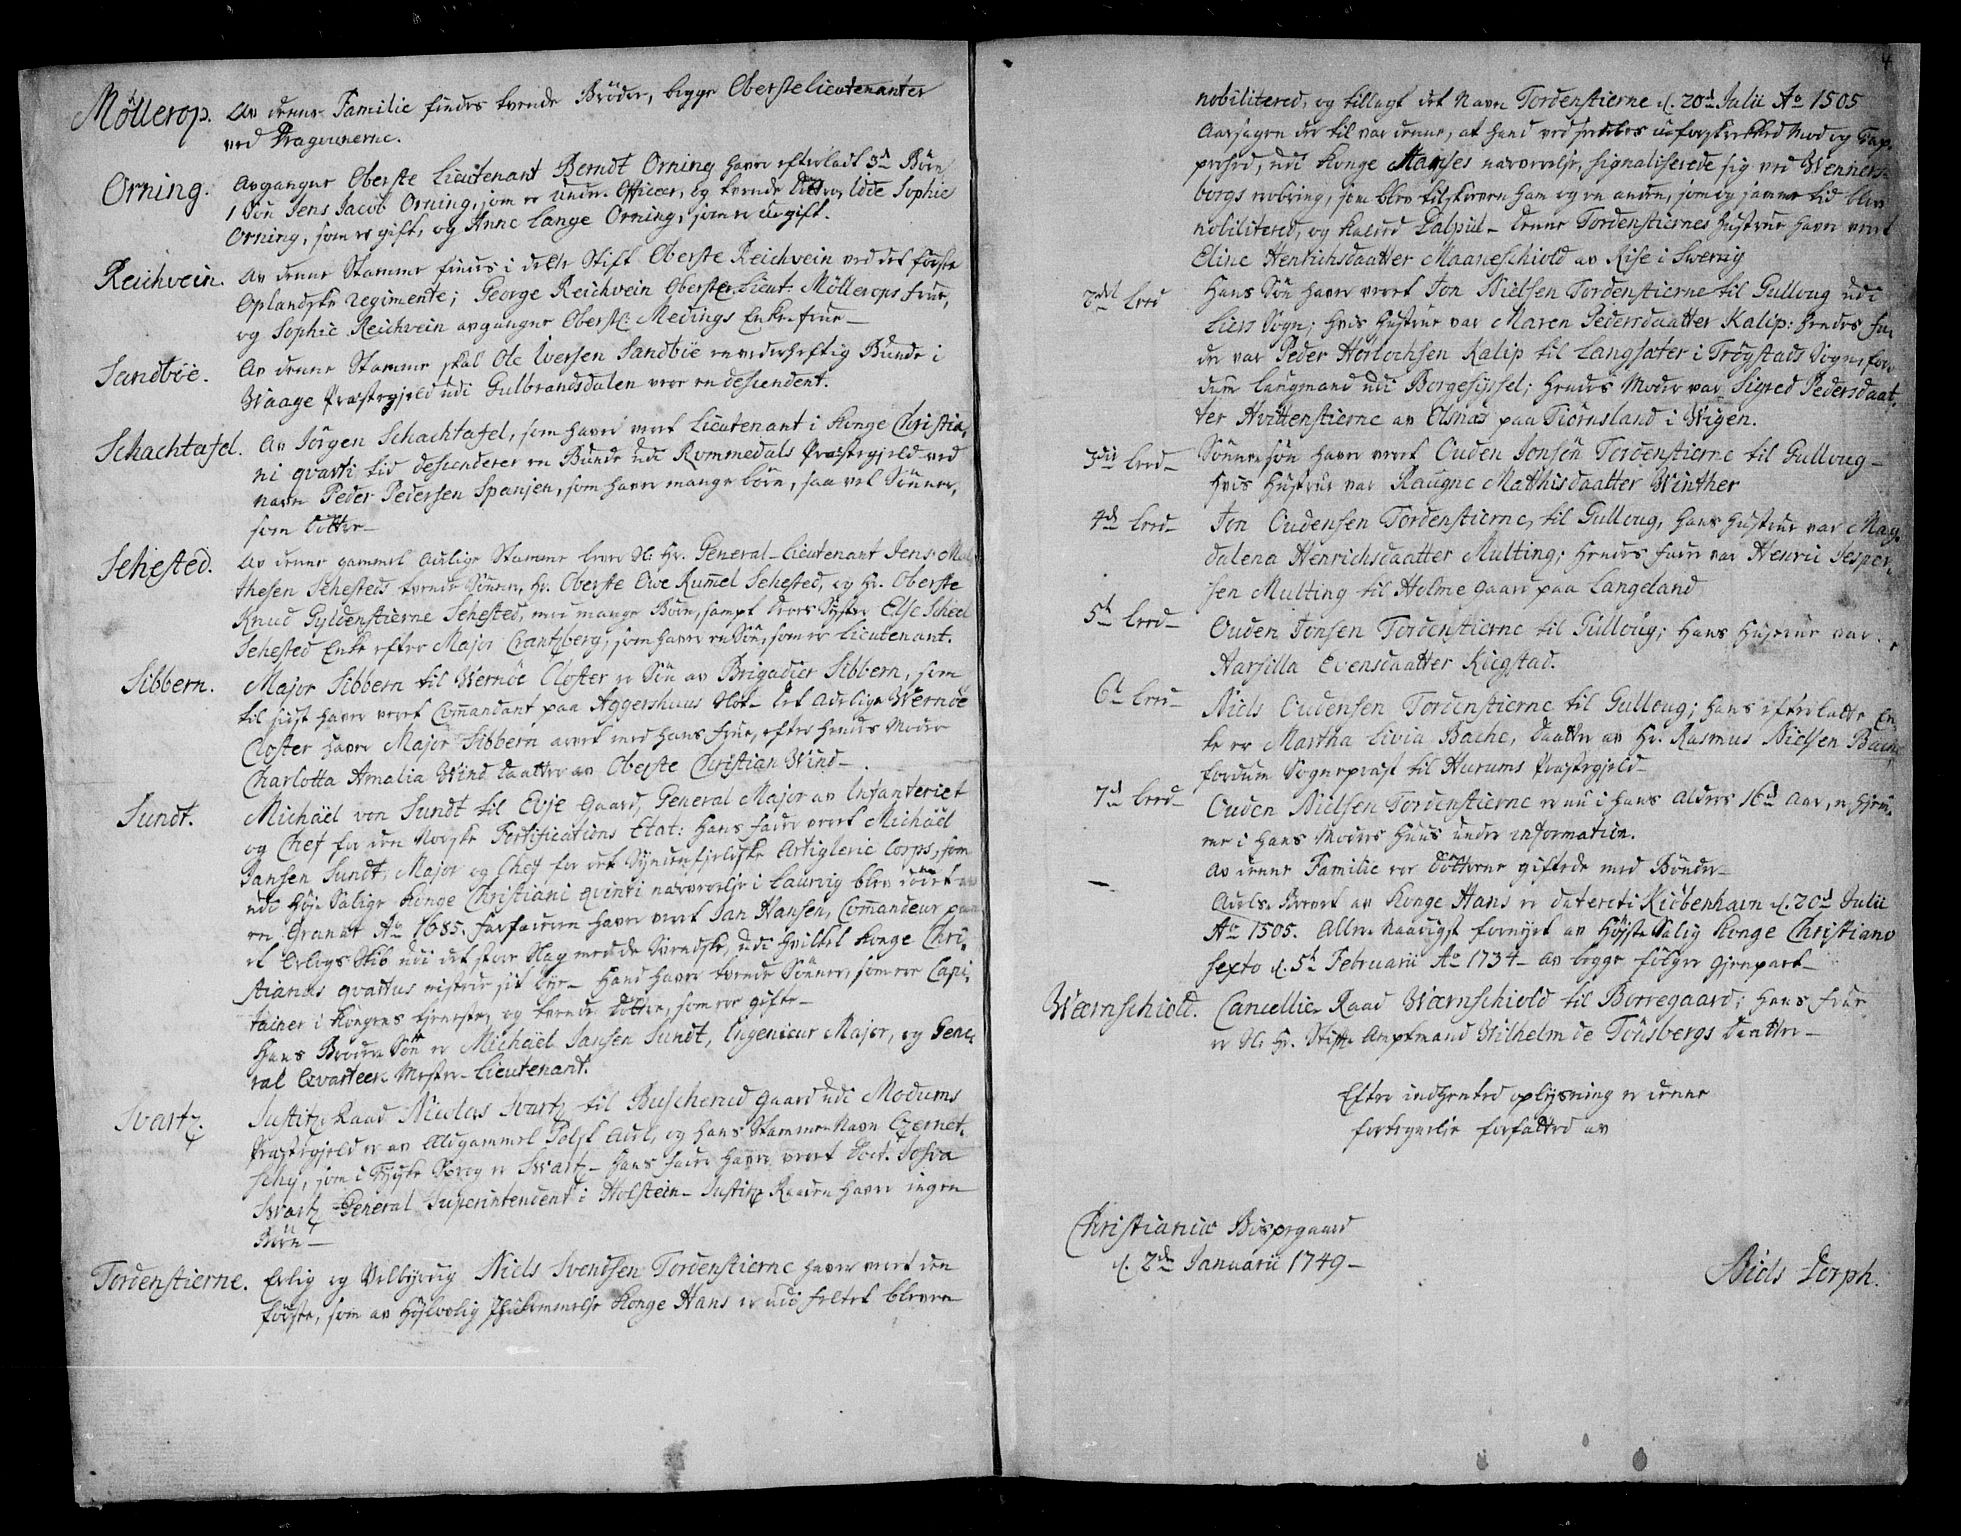 Möllerop. Av denne Familie findes tvende Brödre, begge Obersteliewtenanter
ved Dragounerne.
Orning. Avgangne Oberste Lieutenant Berndt Orning haver efterladt 3d Börn
1 Sön Jens Jacob Orning, som er under Officer, og tvende Döttre, Idie Sophie
Orning, som er gift, og Anne Lange Orning, som er ugift.
Reichvein. Av denne Stamme findes i dette Stift Oberste Reichvein ved det förste
Oplandske regimente; George Reichvein Oberste Lieut. Möllerops Frue,
og Sophie Reichvein avgangne Oberstl: Medings Enke-Frue-
Sandbüe. Av denne Stamme skal Ole Iversen Sandbüe en vederheftig Bunde i
Waage Præstegjeld udi Gulbrandsdalen vere en descendent.
Schachtafel. Av Jörgen Schachtafel, som haver veret Lieutenant i Konge Christia-
ni qvarti tid descenderer en Bunde udi Rommedals Præstegjeld ved
navn Peder Pedersen Spanjen, som haver mange börn, saa vel Sönner,
som Döttre-
Sehested. Av denne gammel adlige Stamme lever Sl: Hr. General-Lieutenant Jens Mal-
thesen Sehesteds tvende Sönner, Hr. Oberste Owe Rummel Sehested, og Hr. Oberste
Knud Gyldenstierne Sehested, med mange Börn, sampt deres Syster Else Scheel
Sehested Enke efter Major Crantzberg, som haver en Sön, som er Lieutenant.
Sibbern. Major Sibbern til Wernöe Closter er Sön av Brigadier Sibbern, som
til sidst haver veret Commandant paa Aggershuus Slot- Det Adelige Wernöe
Closter haver Major Sibbern arvet med hans Frue, efter hendes Moder
Charlotta Amalia Wind Daatter av Oberste Christian Wind-
Sundt. Michäel von Sundt til Evje Gaard, General Major av Infanteriet
og Chef for den Norske Fortifications Etat: Hans Fader veret Michäel
Jansen Sundt, Major og Chef for det Syndenfieldske Artiglerie Corps, som
udi Höje Salige Konge Christiani qvinti nærverelse i Laurvig blev död av
en Granat Ao 1685. Farfaderen haver veret Jan Hansen, Commandeur paa
et Orlogs Skib udi det store Slag med de Svendske, udi hvilket Konge Chri-
stianus qvartus mistede sit öje- Hand haver tvende Sönner, som ere Capi-
tainer i Kongens tjeneste, og tvende Döttre, som ere gifte-
Hans Broders Sön er Michäel Jansen Sundt, Ingenieur Major, og Gene-
ral Qvarteer-Mester-Lieutenant.
Svartz. Justitz Raad Nicolas Svartz til Buscherud Gaard udi Modums
Præstegjeld er av Ældgammel Polsk Adel, og hans Stamme Navn Czernet-
schy, som i Tydske Sprog er Svartz- Hans Fader haver veret Doct. Josva
Svartz General Superintendent i Holstein- Justitz Raaden haver ingen
Börn-
Tordenstierne. Erlig og Velbyrdig Niels Svendsen Tordenstierne haver veret den
förste, som av Höylovlig Ihukommelse Konge Hans er udi Feltet bleven
4
nobilitered, og tillagt det Navn Tordenstierne d. 20d Julii Ao 1505
Aarsagen der til var denne, at hand ved serdeles uforskrekked Mod og Tap-
perhed, udi Konge Hanses nærverelse, signaliserede sig ved Wenners-
borgs erobring, som blev tilskreven ham og en anden, som og samme tid blev
nobilitered, og kalded Galpiil- Denne Tordenstiernes Hustrue haver veret
Eline Henrichsdaatter Maaneschiold av Rise i Swerrig
2det Leed Hans Sön haver veret Jon Nielsen Tordenstierne til Gulloug udi
Liers Sogn; hvis Hustrue var Maren Pedersdaatter Kalip: hendes Fa-
der var Peder Horlochsen Kalip til Langsæter i Trögstads Sogn, for-
dum Laugmand udi Borgesyssel; hendes Moder var Sigred Pedersdaat-
ter Hvittenstierne av Elsnæs paa Tiörnsland i Wigen.
3die Leed- Sönnesön haver veret Ouden Jonsön Tordenstierne til Gulloug-
hvis Hustrue var Raugne Matthisdaatter Winther
4de Leed- Jon Oudensen Tordenstierne, til Gulloug, Hans Hustrue var Mag-
dalena Henrichsdaatter Multing; hendes Fader var Henric Jesper-
sen Multing til Holme gaard paa Langeland
5t Leed- Ouden Jonsen Tordenstierne til Gulloug; Hans Hustrue var
Harsilla Evensdaatter Kiegstad.
6t Leed- Niels Oudensen Tordenstierne til Gulloug; Hans efterlatte En-
ke er Martha Livia Bache, Daatter av Hr. Rasmus Nielsen Bache
fordum Sognepræst til Hurums Præstegjeld-
7d Leed- Ouden Nielsen Tordenstierne er nu i hans Alders 16d Aar, er hjem-
me i hans Moders Huus under information.
Av denne Familie ere Döttrene giftede med Bönder-
Adels-Brevet av Konge Hans er dateret i Kiöbenhavn d. 20d Julii
Ao 1505. Aller Naadigst fornyet av Höjst Salig Konge Christiano
sexto d. 5t Februarii Ao 1734- Av begge fölger Gjenpart-
Wærnschiold. Cancellie Raad Wærnschiold til Borregaard; Hans Frue
er Sl: Hr. Stifts Amptmand Wilhelm de Tönsbergs Daatter-
Efter indhented oplysning er denne
fortegnelse forfatted av
Christianiæ Bispegaard
d. 2den Januarii 1749-
Niels Dorph.